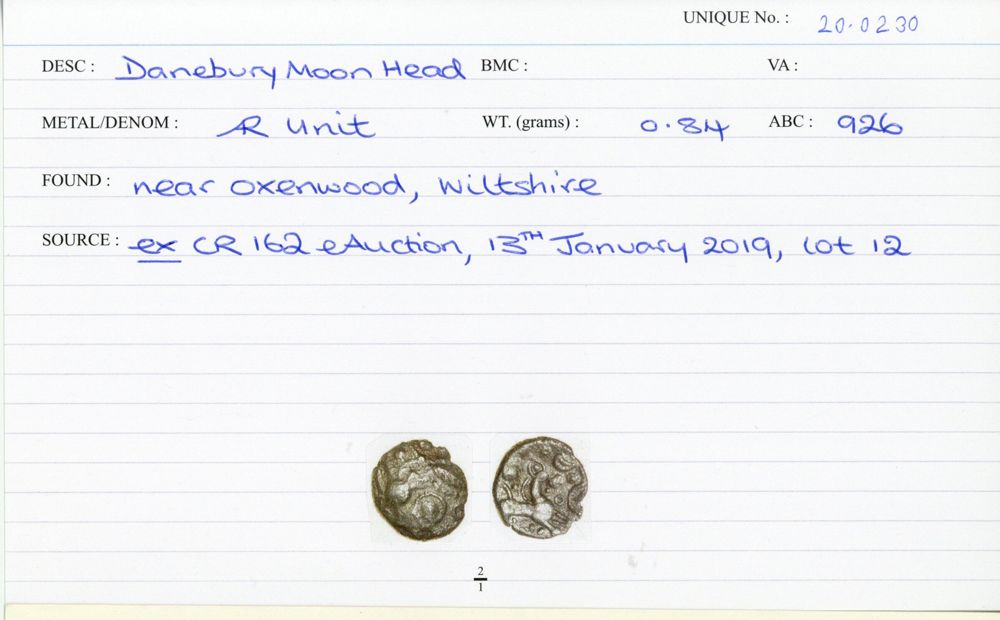 UNIQUE No. : 20.0230
DESC : Danebury Moon Head BMC : VA :
METAL/DENOM : AR Unit WT. (grams) : 0.84 ABC : 926
FOUND : near Oxenwood, Wiltshire
SOURCE : ex CR 162 eAuction, 13TH January 2019, lot 12
2
1